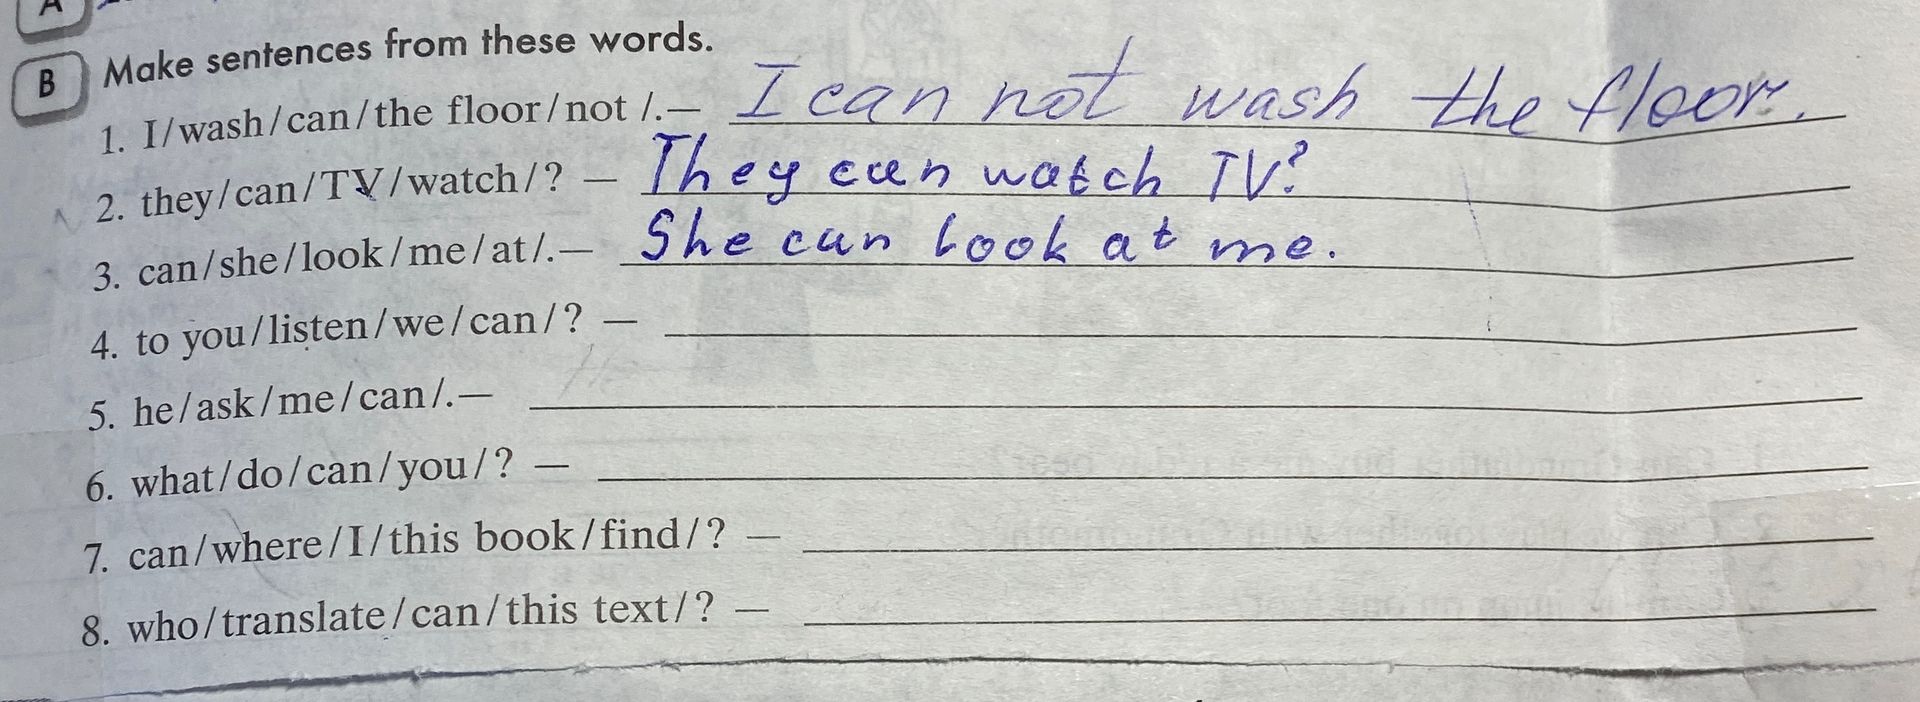 A
B Make sentences from these words.
1. I/wash/can/the floor/not /.— I can not wash the floor.
2. they/can/TV/watch/? — They can watch TV?
3. can/she/look/me/at/.— She can look at me.
4. to you/listen/we/can/? —
5. he/ask/me/can/.—
6. what/do/can/you/? —
7. can/where/I/this book/find/? —
8. who/translate/can/this text/? —